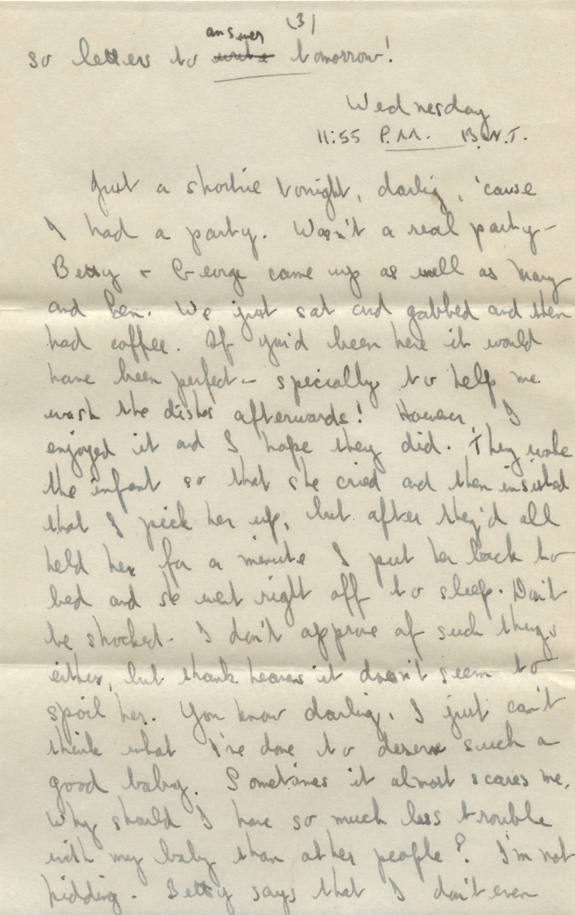 (3)
so letters to write answer tomorrow!
Wednesday
11:55 P.M. B.N.T.
Just a shortie tonight, darlig, 'cause
I had a party. Wasn't a real party -
Betty + George came up as well as Mary
and Ben. We just sat and gabbed and then
had coffee. If you'd been here it would
have been perfect - specially to help me
wash the dishes afterwards! However, I
enjoyed it and I hope they did. They woke
the infant so that she cried and then insisted
that I pick her up, but after they'd all
held her for a minute I put her back to
bed and se went right off to sleep. Don't
be shocked - I don't approve of such things
either, but thank heavens it doesn't seem to
spoil her. You know darling, I just can't
think what I've done to deserve such a
good baby. Sometimes it almost scares me.
Why should I have so much less trouble
with my baby than other people? I'm not
kidding. Betty says that I don't even